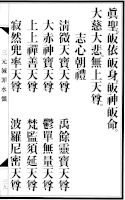 眞聖皈依皈身皈神皈命
大慈大悲無上天尊
志心朝禮
清微天寶天尊
禹餘靈寶天尊
大赤神寶天尊
鬱單無量天尊
上上禪善天尊
梵監須延天尊
寂然兜率天尊
波羅尼密天尊
三元滅罪水懺